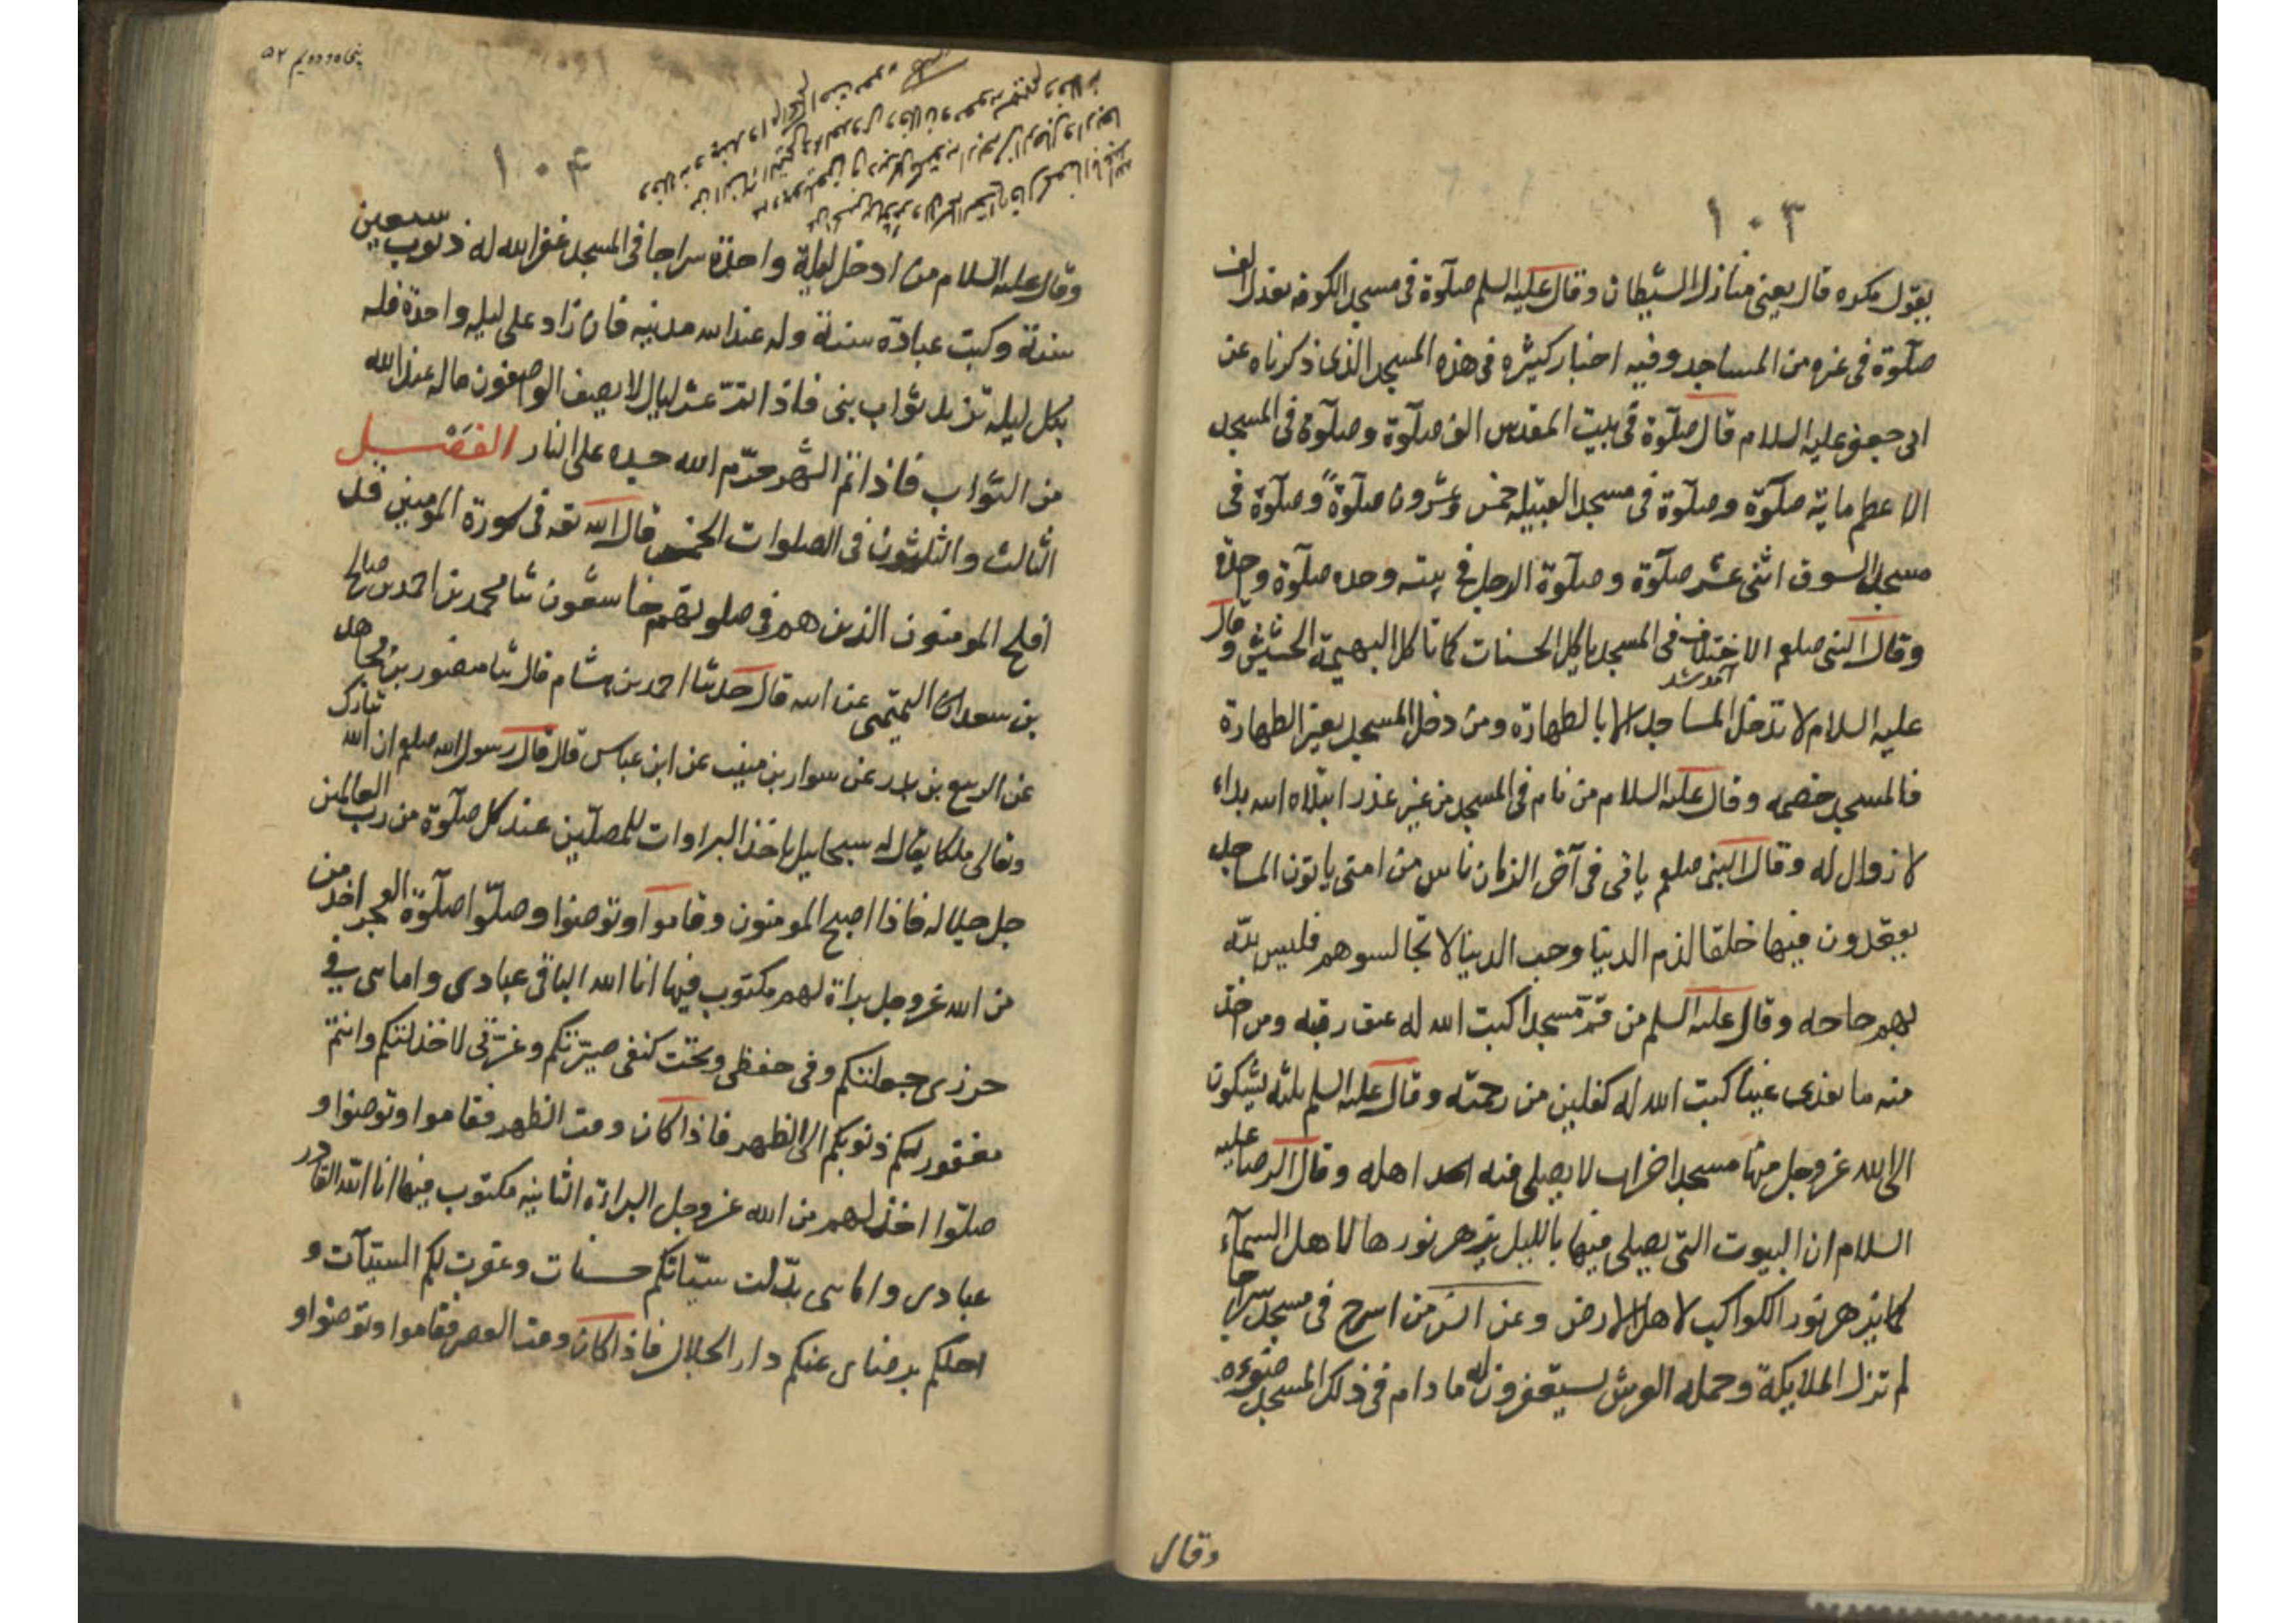 ١٠٣
يقول مكره قال يعنى منازل الشيطان وقال عليه السلم صلوة فى مسجد الكوفه تعدل الف
صلوة فى غيره من المساجد وفيه اخبار كثيره فى هذه المسجد الذى ذكرناه عن
ابى جعفر عليه السلام قال صلوة فى بيت المقدس الف صلوة وصلوة فى المسجد
الاعظم ماية صلوة وصلوة فى مسجد القبيله خمس وعشرون صلوة وصلوة فى
مسجد السوق اثنى عشر صلوة وصلوة الرجل فى بيته وحده صلوة وحدة
وقال النبى صلعم الاختلاف فى المسجد ياكل الحسنات كما تاكل البهيمة الحشيش وقال
آمد شد
عليه السلام لا تدخل المساجد الا بالطهارة ومن دخل المسجد بغير الطهارة
فالمسجد خصمه وقال عليه السلام من نام فى المسجد من غير عذر ابتلاه الله بداء
لا زوال له وقال النبى صلعم ياتى فى آخر الزمان ناس من امتى ياتون المساجد
يقعدون فيها حلقا لذم الدنيا وحب الدنيا لا تجالسوهم فليس لله
لهم حاجه وقال عليه السلم من قمّ مسجدا كبت الله له عتق رقبه ومن اخذ
منه ما تقذى عينا كبت الله له كفلين من رحمته وقال عليه السلم ثلثه يشكون
الى الله عز وجل منها مسجد اخراب لا يصلى فيه احد اهله وقال الرضا عليه
السلام ان البيوت التى يصلى فيها بالليل يزهر نورها لاهل السمآء
كما يزهر نور الكواكب لاهل الارض وعن انس من اسرج فى مسجد سراجا
لم تزل الملايكة وحمله العرش يستغفرون له ما دام فى ذلك المسجد ضوءه
وقال
پنجاه و دويم ٥٢
١٠٤
وقال عليه السلام من ادخل ليلة واحدة سراجا فى المسجد غفر الله له ذنوب سبعين
سنة وكبت عبادة سنة وله عند الله مدينه فان زاد على ليله واحدة فله
بكل ليله تزيد ثواب نبى فاذا تمّ عشر ليال لا يصف الواصفون ماله عند الله
من الثواب فاذا تم الشهر حرّم الله جسده على النار الفصل
الثالث والثلثون فى الصلوات الخمس قال الله تعه فى سورة المومنين قد
افلح المومنون الذين هم فى صلوتهم خاشعون ثنا محمد بن احمد بن صالح
بن سعد التميمى عن ابيه قال حدثنا احمد بن هشام قال ثنا منصور بن مجاهد
عن الربيع بن بدر عن سوار بن منيب عن ابن عباس قال قال رسول الله صلعم ان الله تبارك
وتعالى ملكا يقال له سبحاييل ياخذ البراوات للمصلّين عند كل صلوة من رب العالمين
جل جلاله فاذا اصبح المومنون وقاموا وتوضئوا وصلّوا صلوة الفجر اخذ من
من الله عز وجل براة لهم مكتوب فيها انا الله الباقى عبادى وامائى فى
حرزى جعلتكم وفى حفظى وتحت كنفى صيرّتكم وعزّتى لا خذلتكم وانتم
مغفور لكم ذنوبكم الى الظهر فاذا كان وقت الظهر فقاموا وتوضئوا و
صلّوا اخذ لهم من الله عز وجل البراءة الثانيه مكتوب فيها انا الله القادر
عبادى وامائى بدّلت سيّاتكم حسنات وغفرت لكم السيّآت و
احلكم برضائى عنكم دار الجلال فاذا كان وقت العصر فقاموا وتوضئوا و